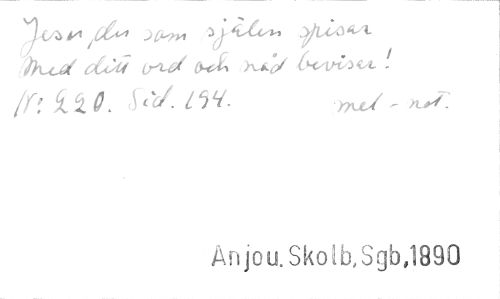 Jesu, du som själen spisar
Med ditt ord och nåd bevisar!
N: 220. Sid. 194.
mel - not.
Anjou. Skolb, Sgb, 1890